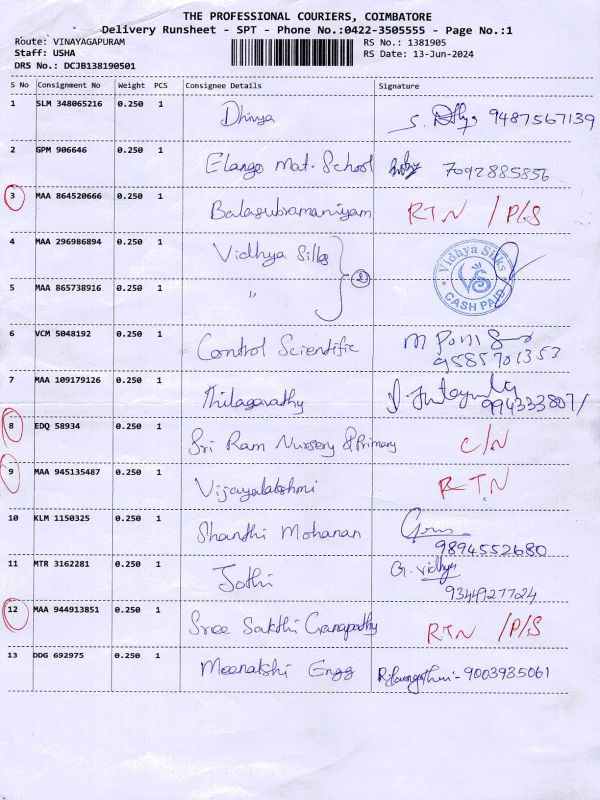 THE PROFESSIONAL COURIERS, COIMBATORE
Delivery Runsheet - SPT - Phone No.:0422-3505555 - Page No.:1
Route: VINAYAGAPURAM RS No.: 1381905
Staff: USHA RS Date: 13-Jun-2024
DRS No.: DCJB138190501
S No Consignment No Weight PCS Consignee Details Signature
1 SLM 348065216 0.250 1 Dhivya 9487567139
2 GPM 906646 0.250 1 Elango Mat. School 7092885856
3 MAA 864520666 0.250 1 Balasubramaniyam RTN / P/S
4 MAA 296986894 0.250 1 Vidhya Silks Vidhya Silks VS CASH PAID
5 MAA 865738916 0.250 1 " 2
6 VCM 5048192 0.250 1 Control Scientific M Poni
9585701353
7 MAA 109179126 0.250 1 Thilagavathy
994333807/
8 EDQ 58934 0.250 1 Sri Ram Nursery & Primary C/N
9 MAA 945135487 0.250 1 Vijayalakshmi RTN
10 KLM 1150325 0.250 1 Shanthi Mohanan
9894552680
11 MTR 3162281 0.250 1 Jothi G. Vidhya
9344927724
12 MAA 944913851 0.250 1 Sree Sakthi Ganapathy RTN / P/S
13 DDG 692975 0.250 1 Meenakshi Engg - 9003935061